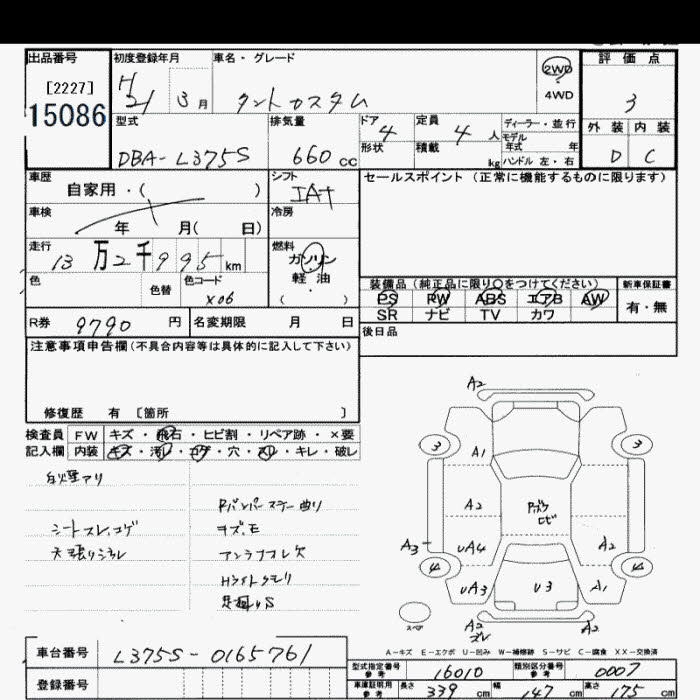 出品番号 初度登録年月 車名・グレード 2WD 評価点
[2227] H21 3月 タントカスタム 4WD 3
15086 型式 排気量 ドア 4 定員 4人 ディーラー・並行 外装 内装
DBA-L375S 660cc 形状 積載 kg モデル年式 年 D C
ハンドル 左・右
車歴 自家用・( ) シフト IAT セールスポイント(正常に機能するものに限ります)
車検 年 月( 日) 冷房
走行 13万2千995km 燃料 ガソリン
軽・油
色 色替 色コード X06 ( ・ ) 装備品(純正品に限り〇をつけてください) 新車保証書
PS PW ABS エアB AW 有・無
SR ナビ TV カワ
R券 9790円 名変期限 月 日 後日品
注意事項申告欄(不具合内容等は具体的に記入して下さい)
修復歴 有 [箇所 ]
検査員 FW キズ・飛石・ヒビ割・リペア跡・×要
記入欄 内装 キズ・汚レ・コゲ・穴・スレ・キレ・破レ
シートスレ、コゲ
天張りシミ
Rバンパーステー曲り
キズ、モ
アンテナフレ欠
Hライトクモリ
足廻りS
A2
3 3
A1
A2 Pボケ
ロビ
A3 UA4 A2
4 4
UA3 U3 A1
スペア A2 スレ A2
A-キズ E-エクボ U-凹み W-補修跡 S-サビ C-腐食 XX-交換済
車台番号 L375S-0165761
登録番号
型式指定番号 参考 16010 類別区分番号 参考 0007
車庫証明用 参考 長さ 339cm 幅 147cm 高さ 175cm